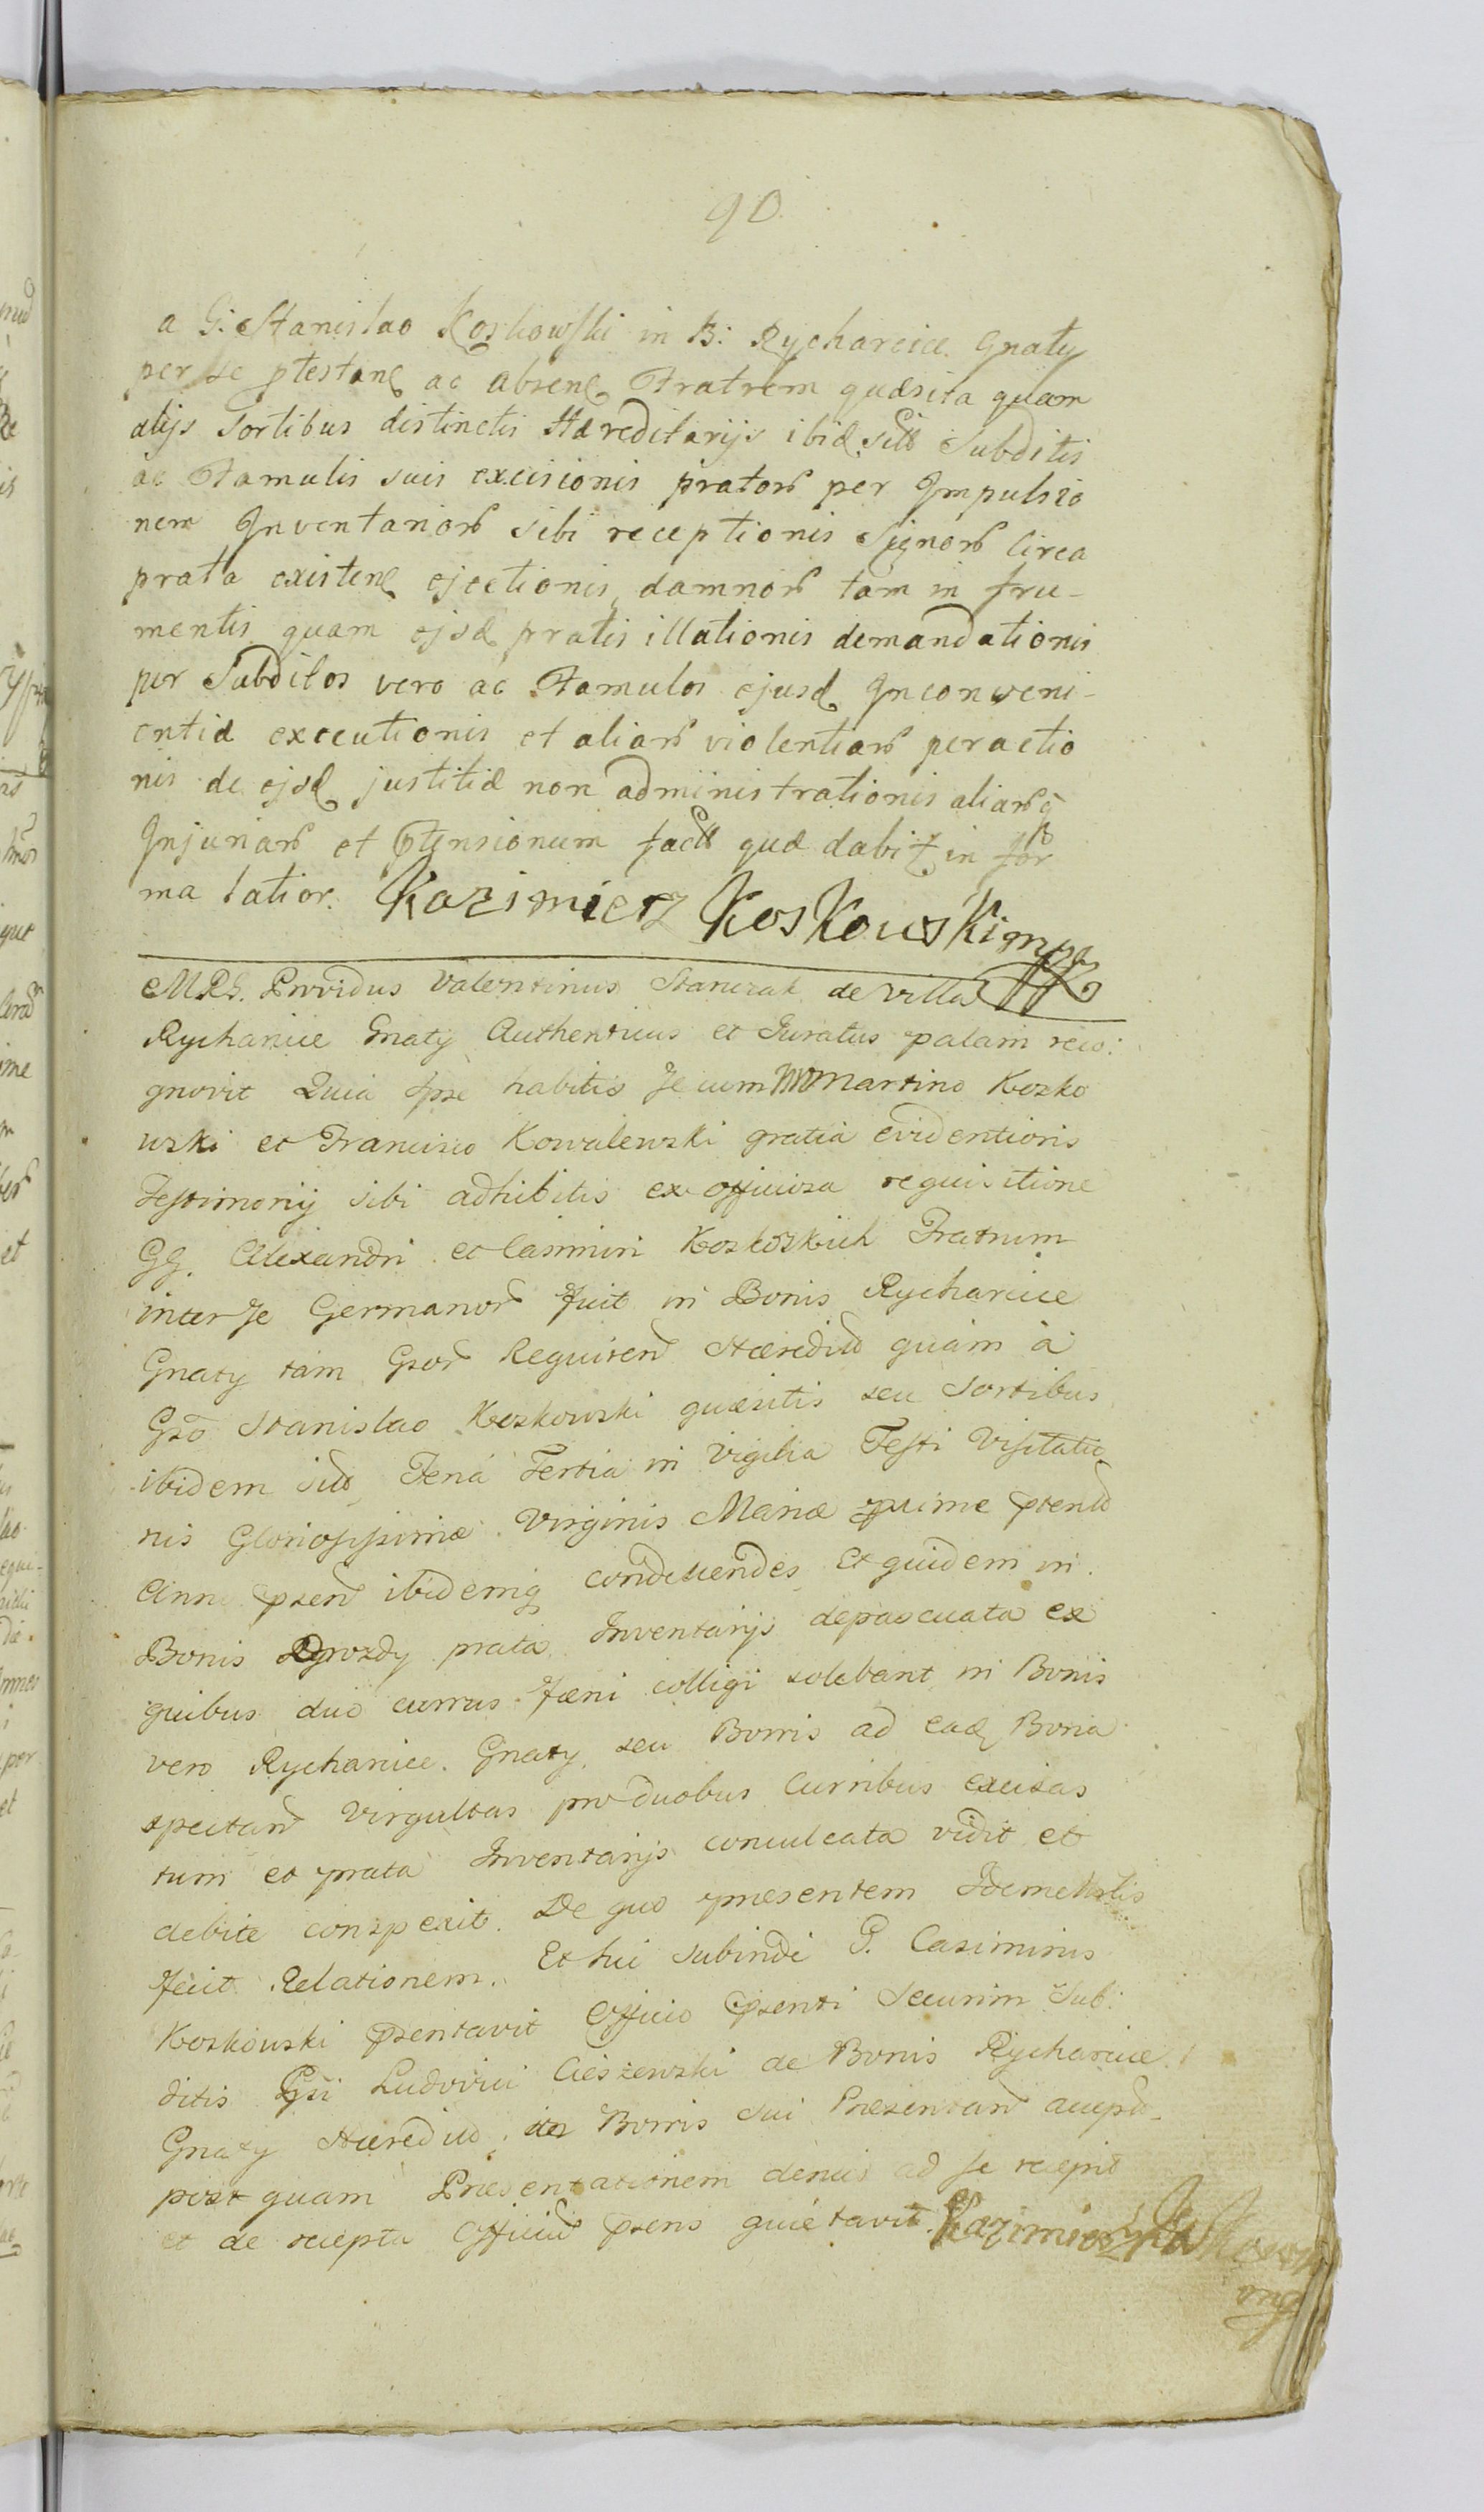 90
a G: Stanislao Koskowski in B: Rycharcice Gnaty
per se ptestanc ac absenc Fratrem quæsita quam
alijs Sortibus distinctis Hæreditarijs ibid sitt Subditis
ac Famulis suis excisionis prator per Impulsio
nem Inventarior sibi receptionis Signor circa
prata existenc ejectionis damnor tam in fru-
mentis quam ejsd pratis illationis demandationis
per Subditos vero ac Famulos ejusd Inconveni-
entiæ executionis et aliar violentiar peractio
nis de ejsd justitiæ non administrationis aliarq
Injuriar et ptensionum fact quæ dabit in for
ma latior. Kazimierz Koskowski mp
MRS. Providus Valentinus Stanczak de Villa
Rycharcice Gnaty Authenticus et Juratus palam reco:
gnovit Quia ipse habitis Secum Martino Kosko
wski et Francisco Kowalewski gratia evidentioris
Testimonij sibi adhibitis ex officiosa requisitione
GG. Alexandri et Casimiri Koskoskich Fratrum
inter Se Germanor fuit in Bonis Rycharcice
Gnaty tam Gsor Requiren Hæredit quam à
Gso Stanislao Koskowski quæsitis seu Sortibus
ibidem sit Feria Tertia in Vigilia Festi Visitatio
nis Gloriosissimæ Virginis Mariæ pxime pterit
Anni psen ibidemq condescendes Et quidem in
Bonis Drozdy prata Inventarijs depascuata ex
quibus duo currus Fæni colligi solebant in Bonis
vero Rycharcice Gnaty seu Bonis ad ead Bona
spectan Virgultas pro duobus Curribus excisas
tum et prata Inventarijs conculcata vidit et
debite conspexit. De quo præsentem Idem Mtlis
fecit Relationem. Et hic subinde G. Casimirus
Koskowski psentavit Officio psenti Securim Sub:
ditis Gsi Ludovici Cieszewski de Bonis Rycharcice
Gnaty Hæredit in Bonis sui Præsentan accept
post quam Præsentationem denuo ad se recepit
et de recepta Officiu psens quietavit. Kazimierz